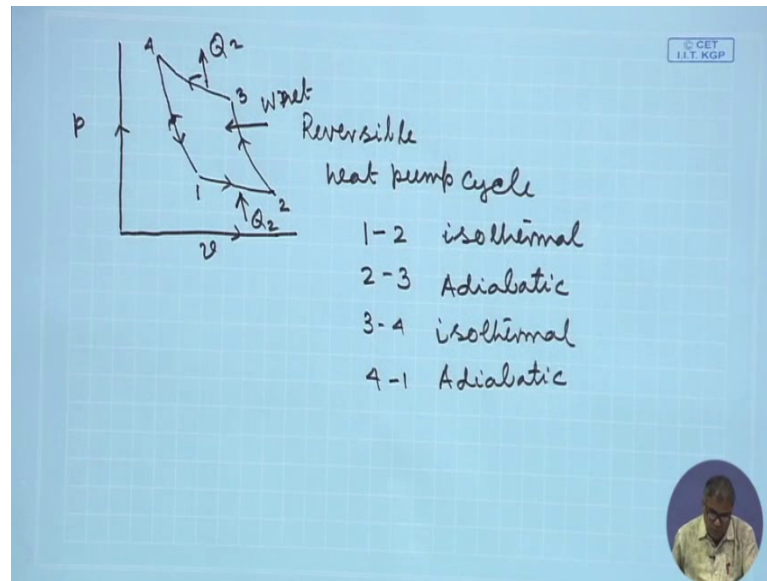 © CET
I.I.T. KGP
4
Q2
3
Wnet
p
Reversible
heat pump cycle
1
2
Q2
v
1-2 isothermal
2-3 Adiabatic
3-4 isothermal
4-1 Adiabatic